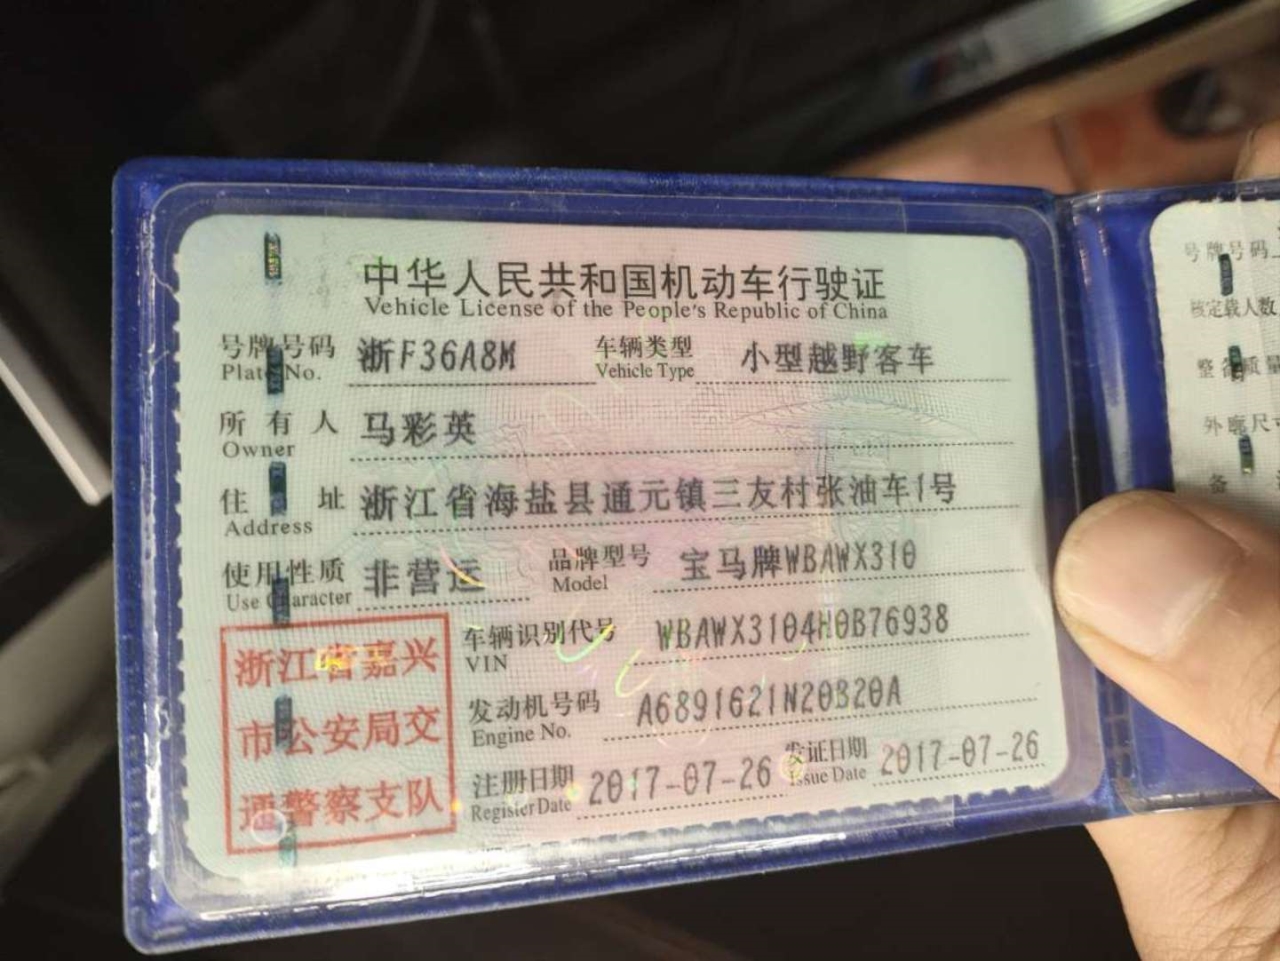 中华人民共和国机动车行驶证
Vehicle License of the People's Republic of China
号牌号码 浙F36A8M 车辆类型 小型越野客车
Plate No. Vehicle Type
所有人 马彩英
Owner
住址 浙江省海盐县通元镇三友村张油车1号
Address
使用性质 非营运 品牌型号 宝马牌WBAWX310
Use Character Model
车辆识别代号 WBAWX3104H0B76938
VIN
发动机号码 A6891621N20B20A
Engine No.
注册日期 2017-07-26 发证日期 2017-07-26
Register Date Issue Date
浙江省嘉兴
市公安局交
通警察支队
号牌号码
核定载人数
整备质量
外廓尺寸
备